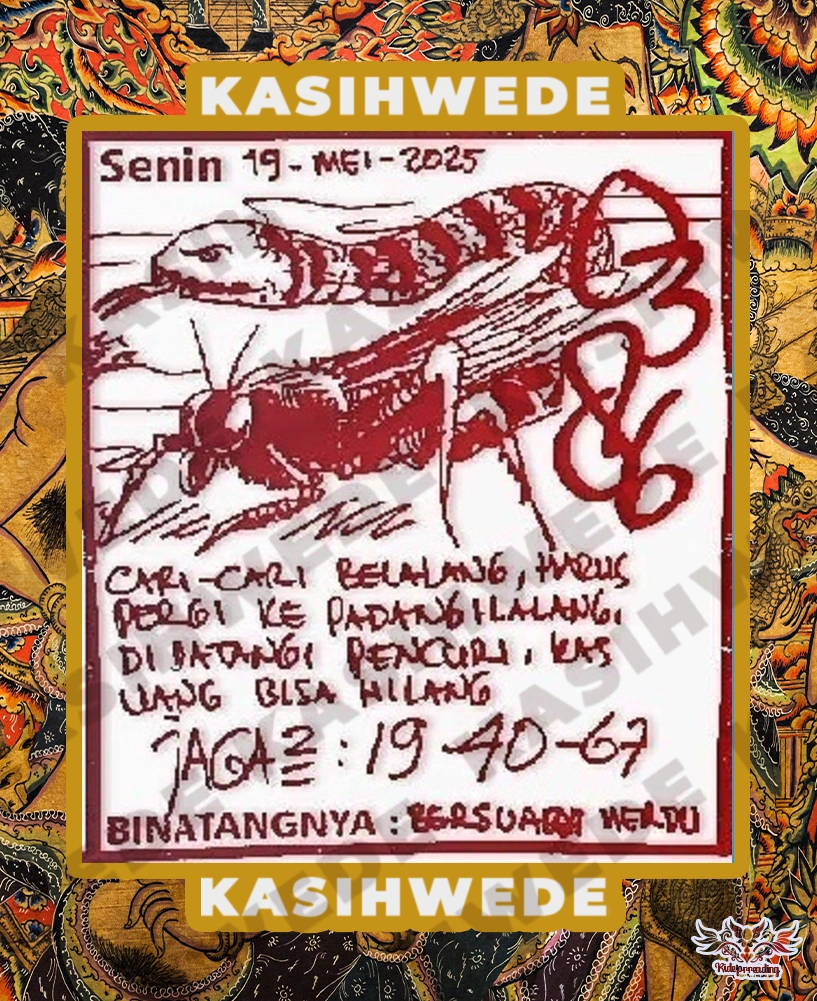 KASIHWEDE
Senin 19-MEI-2025
03
86
CARI-CARI BELALANG, HARUS
PERGI KE PADANG ILALANG,
DI DATANGI PENCURI, KAS
UANG BISA HILANG
JAGA2 : 19-40-67
BINATANGNYA : BERSUARA MERDU
KASIHWEDE